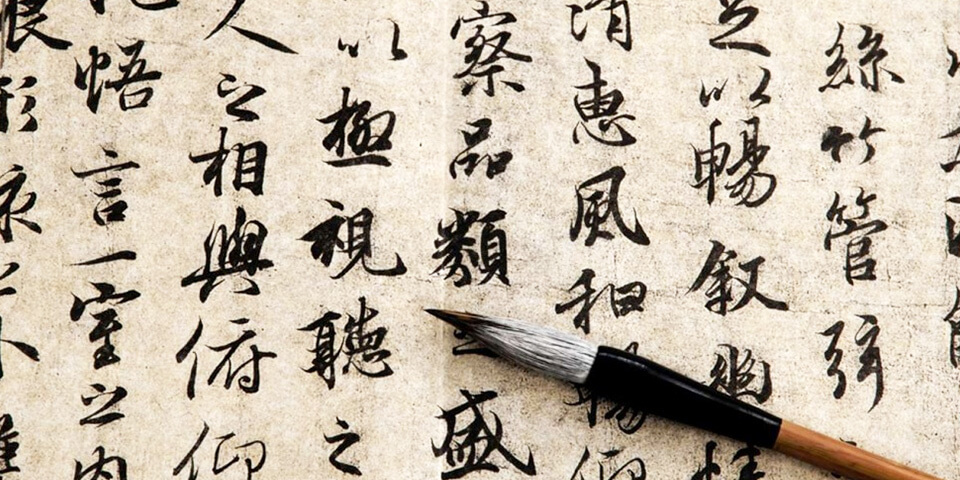 絲竹管弦
足以暢叙幽情
清惠風和暢仰
察品類之盛
以極視聽之
人之相與俯仰
悟言一室之内
形骸之外